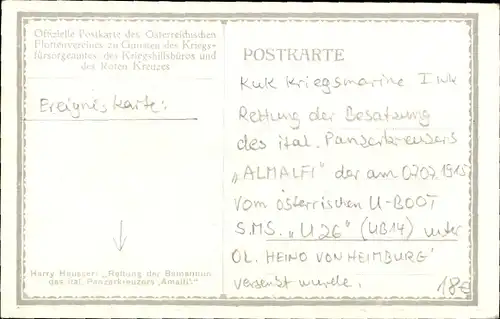 Offizielle Postkarte des Österreichischen
Flottenvereines zu Gunsten des Kriegs-
fürsorgeamtes, des Kriegshilfsbüros und
des Roten Kreuzes
Ereigniskarte:
Harry Heusser: „Rettung der Bemannung
des ital. Panzerkreuzers ‚Amalfi‘.“
POSTKARTE
KuK Kriegsmarine I WK
Rettung der Besatzung
des ital. Panzerkreuzers
„ALMALFI" der am 07.07.1915
vom österrischen U-BOOT
S.M.S. „U26" (UB14) unter
OL. HEINO VON HEIMBURG'
versenkt wurde.
18€